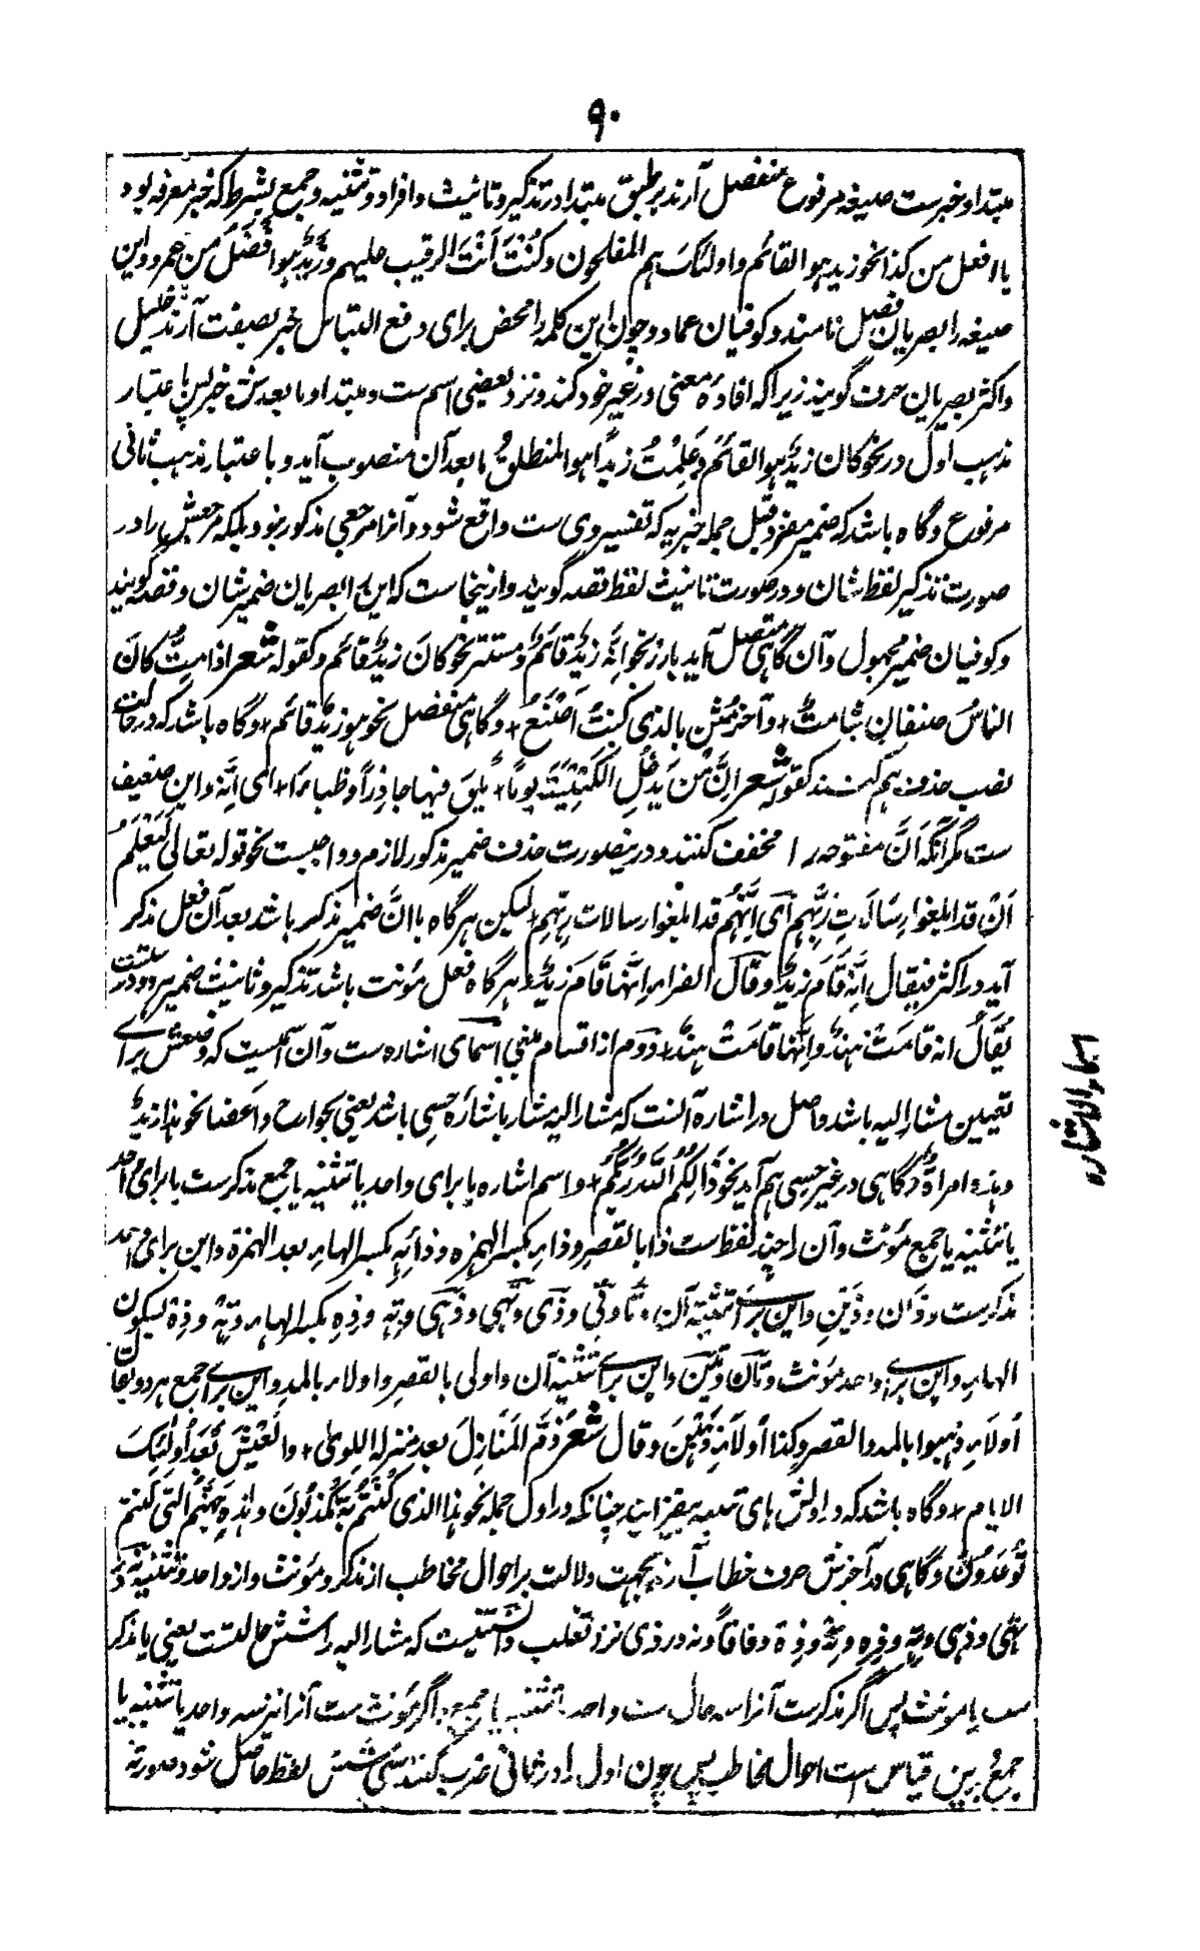 ۹۰
مبتدا و خبرست صیغه مرفوع منفصل آرند بر طبق مبتدا در تذکیر و تانیث و افراد و تثنیه و جمع بشرطیکه خبر معرفه بود
یا افعل من کذا نحو زید هو القائم و اولئک هم المفلحون و کُنْتَ اَنْتَ الرقیب علیهم و زَیْدٌ هو اَفْضَلُ من عمرو و این
صیغه را بصریان فصل نامند و کوفیان عماد و چون این کلمه را محض برای دفع التباس خبر بصفت آرند خلیل
و اکثر بصریان حرف گویند زیرا که افادهٔ معنی در غیر خود کند و نزد بعضی اسم ست و مبتدا و ما بعدش خبر پس باعتبار
مذهب اول در نحو کان زیدٌ هو القائمَ و عَلِمْتُ زیداً هو المنطلقُ ما بعد آن منصوب آید و باعتبار مذهب ثانی
مرفوع و گاه باشد که ضمیر مفرد قبل جمله خبریه که تفسیر وی ست واقع شود و آنرا مرجعی مذکور نبود بلکه مرجعش را در
صورت تذکیر لفظ شان و در صورت تانیث لفظ قصه گویند و ازینجاست که این را بصریان ضمیر شان و قصه گویند
و کوفیان ضمیر مجهول و آن گاهی متصل آید بارز نحو اِنَّهٗ زیدٌ قائمٌ و مستتر نحو کانَ زیدٌ قائم و کقوله شعر اذا مِتُّ کانَ
الناسُ صنفانِ شامتٌ + و آخر مُثْنٍ بالذی کنتُ اَصْنَعُ + و گاهی منفصل نحو هو زیدٌ قائم + و گاه باشد که در حالت
نصب حذف هم کنند کقوله شعر اِنَّ مَنْ یَدْخُلِ الکَنِیْسَةَ یوماً + یلقَ فیها جاٰذِراً و ظباءً + ای اِنَّهٗ و این ضعیف
ست مگر آنکه اَنَّ مفتوحه را مخفف کنند و درینصورت حذف ضمیر مذکور لازم و واجبست نحو قوله تعالی لِیَعْلَمَ
اَنْ قد ابلغوا رِسَالَاتِ رَبِّهِم ای اَنَّهُم قد ابلغوا رسالات ربّهم + لیکن هرگاه با اِنَّ ضمیر مذکر باشد بعد آن فعل مذکر
آید در اکثر فیقال اِنَّهٗ قَامَ زیدٌ و قال الفراء اِنَّها قَامَ زیدٌ و هرگاه فعل مؤنث باشد تذکیر و تانیث ضمیر هر دو درست
یُقَالُ انه قامَتْ هندٌ و اِنَّها قامَتْ هندٌ + دوم از اقسام مبنی اسمای اشاره ست و آن اسمیست که وضعش برای
تعیین مشار الیه باشد و اصل در اشاره آنست که مشار الیه مشار باشارهٔ حسی باشد یعنی بجوارح و اعضا نحو هذا زیدٌ
و هذه امراةٌ و گاهی در غیر حسی هم آید نحو ذَالِکُم اللّٰهُ رَبُّکُم + و اسم اشاره یا برای واحد یا تثنیه یا جمع مذکر ست یا برای واحد
یا تثنیه یا جمع مؤنث و آن را چند لفظ ست ذا بالقصر و ذاءِ بکسر الهمزه و ذائِهِ بکسر الهاء بعد الهمزة و این برای واحد
مذکر ست و ذَانِ و ذَیْنِ و این برای تثنیهٔ آن، تا و تِی و ذِی و تِهی و ذِهی و تِهِ و ذِهِ بکسر الهاء و تِهْ و ذِهْ بسکون
الهاء و این برای واحد مؤنث و تَانِ و تَیْنِ و این برای تثنیه آن و اولی بالقصر و اولاء بالمد و این برای جمع هر دو یقال
اُولاءِ ذهبوا بالمد و القصر و کذا اُولاءِ ذَهَبْنَ و قال شعر ذُمَّ المَنَازِلَ بعد منزلة اللِّوی + و العَیْشَ بَعْدَ اُولٰئِکَ
الایام + و گاه باشد که در اولش های تنبیه بیفزایند چنانکه در اول جمله نحو هذا الذی کُنْتُم بِهِ تُکَذِّبُونَ و هٰذِهِ جَهَنَّمُ التی کنتم
تُوعَدُونَ و گاهی در آخرش حرف خطاب آرند بجهت دلالت بر احوال مخاطب از مذکر و مؤنث و از واحد و تثنیه
تِهی و ذِهی و تِهِ و ذِهِ و تِهْ و ذِهْ وفاقاً و نه در ذی نزد ثعلب دانستنیست که مشار الیه را شش حالتست یعنی یا مذکر
ست یا مونث پس اگر مذکرست آنرا سه حال ست واحد یا تثنیه یا جمع و اگر مؤنث ست آنرا نیز سه واحد یا تثنیه یا
جمع و برین قیاس ست احوال مخاطب پس چون اول را در ثانی ضرب کنند سی و شش لفظ حاصل شود صورته
اسماء الاشاره